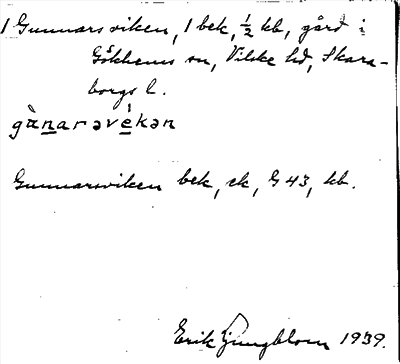 1 Gunnarsviken, 1 bek, ½ kb, gård i
Gökhems sn, Vilske hd, Skara-
borgs l.
gànarəvékən
Gunnarsviken bek, ek, G 43, kb.
Erik Ljungblom 1939.